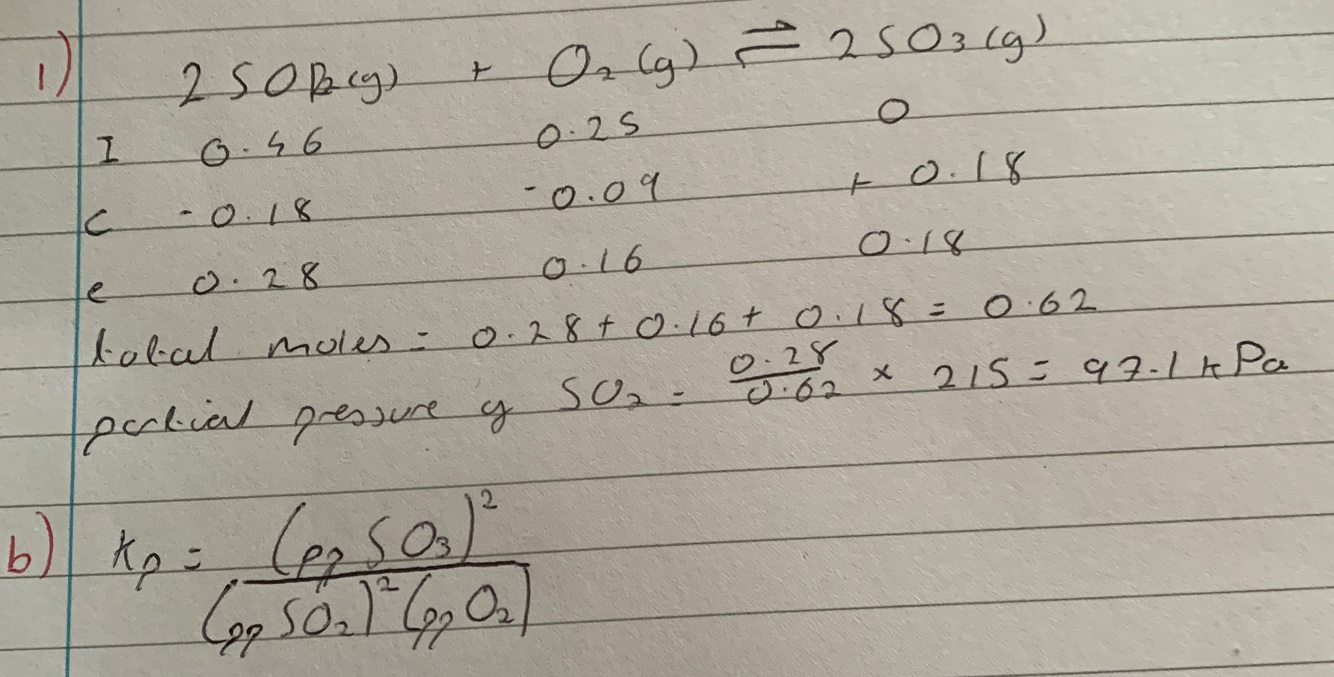 1) 2SO2(g) + O2(g) ⇌ 2SO3(g)
I 0.46 0.25 0
C -0.18 -0.09 +0.18
e 0.28 0.16 0.18
total moles = 0.28 + 0.16 + 0.18 = 0.62
partial pressure of SO2 = 0.28/0.62 × 215 = 97.1 kPa
b) Kp = (pp SO3)² / (pp SO2)² (pp O2)